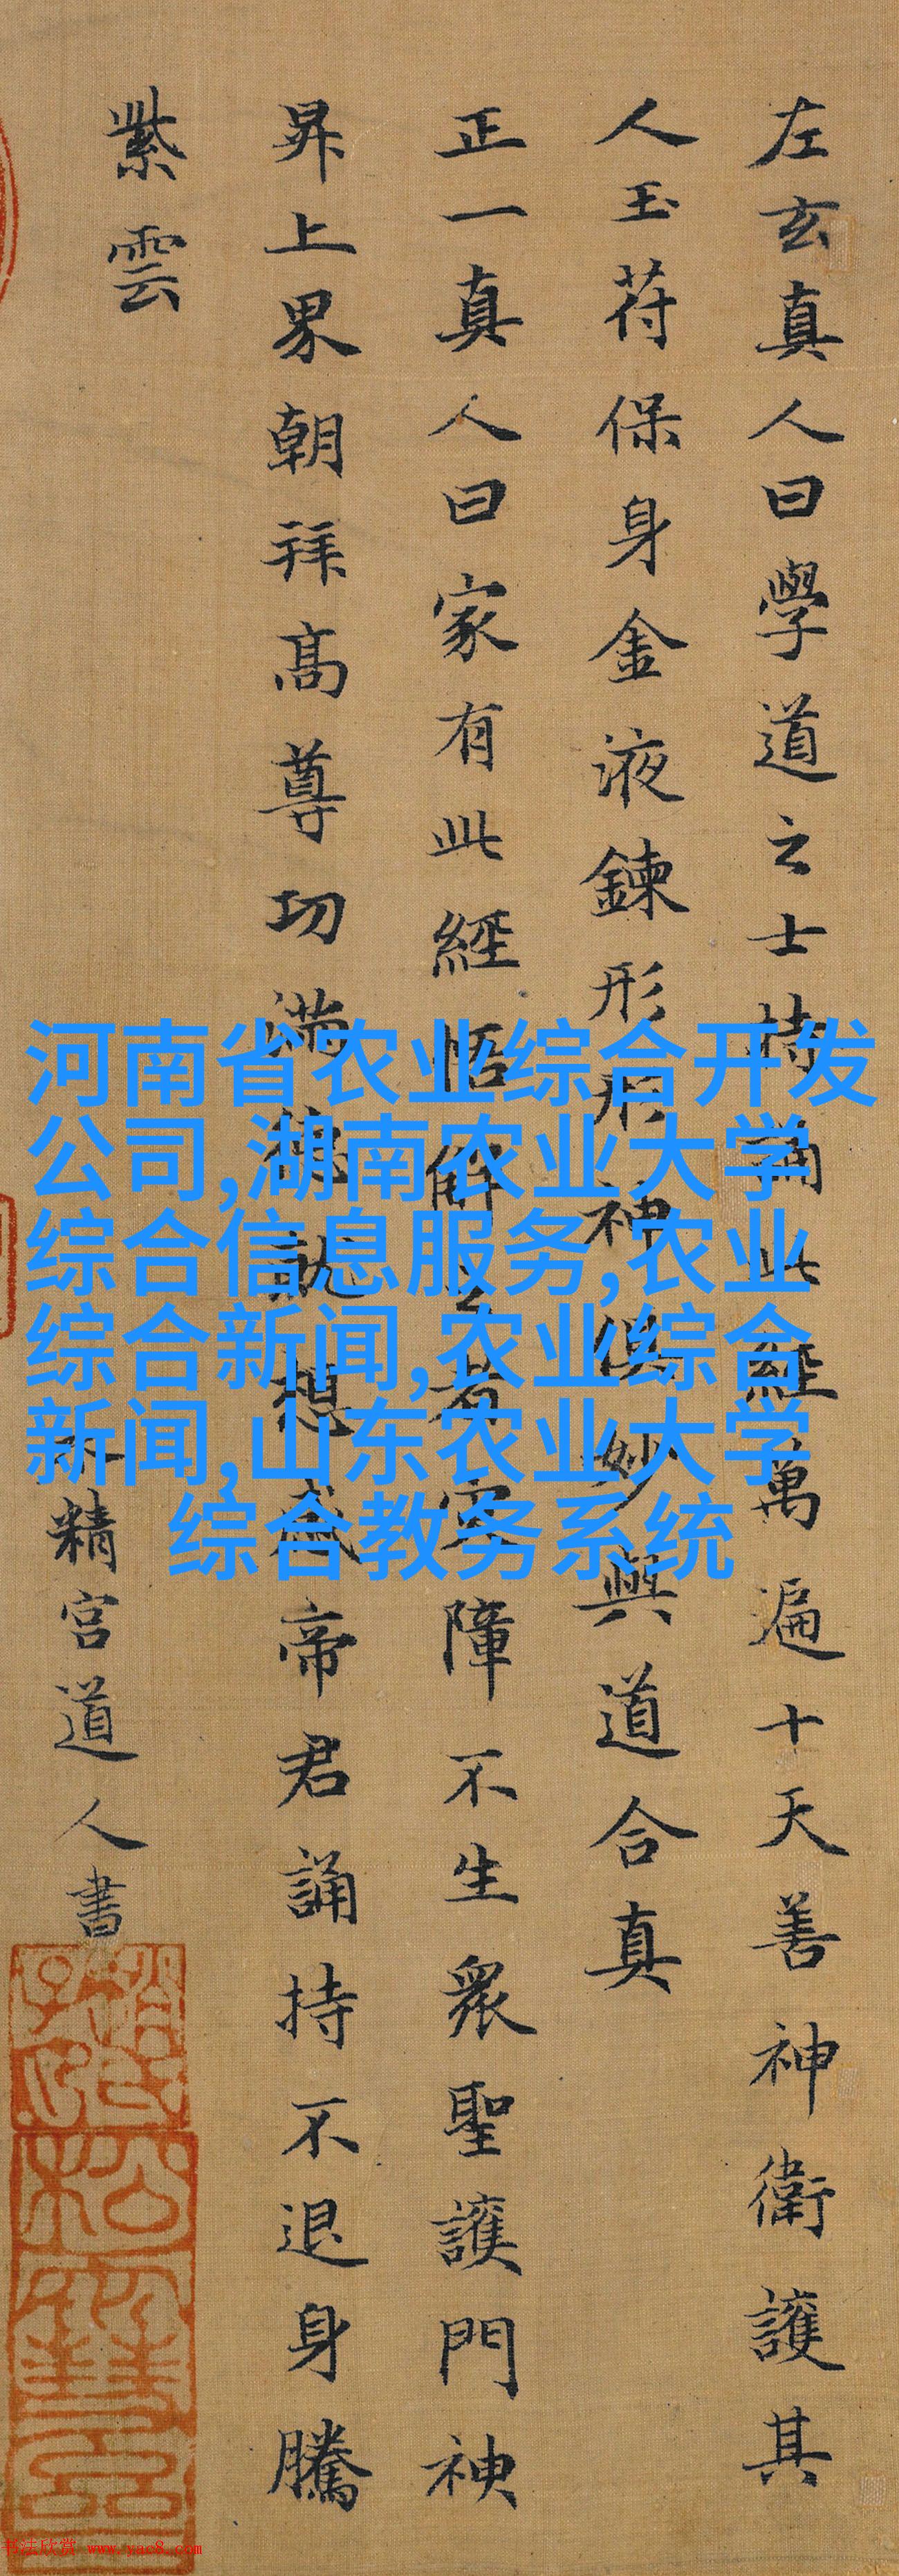 左玄真人曰學道之士持誦此經萬遍十天善神衛護其
人玉苻保身金液鍊形形神俱妙與道合真
正一真人曰家有此經悟解之者災障不生衆聖護門神
昇上界朝拜高尊功滿德就想感帝君誦持不退身騰
紫雲
水精宮道人書
河南省农业综合开发
公司,湖南农业大学
综合信息服务,农业
综合新闻,农业综合
新闻,山东农业大学
综合教务系统
书法欣赏 www.yac8.com